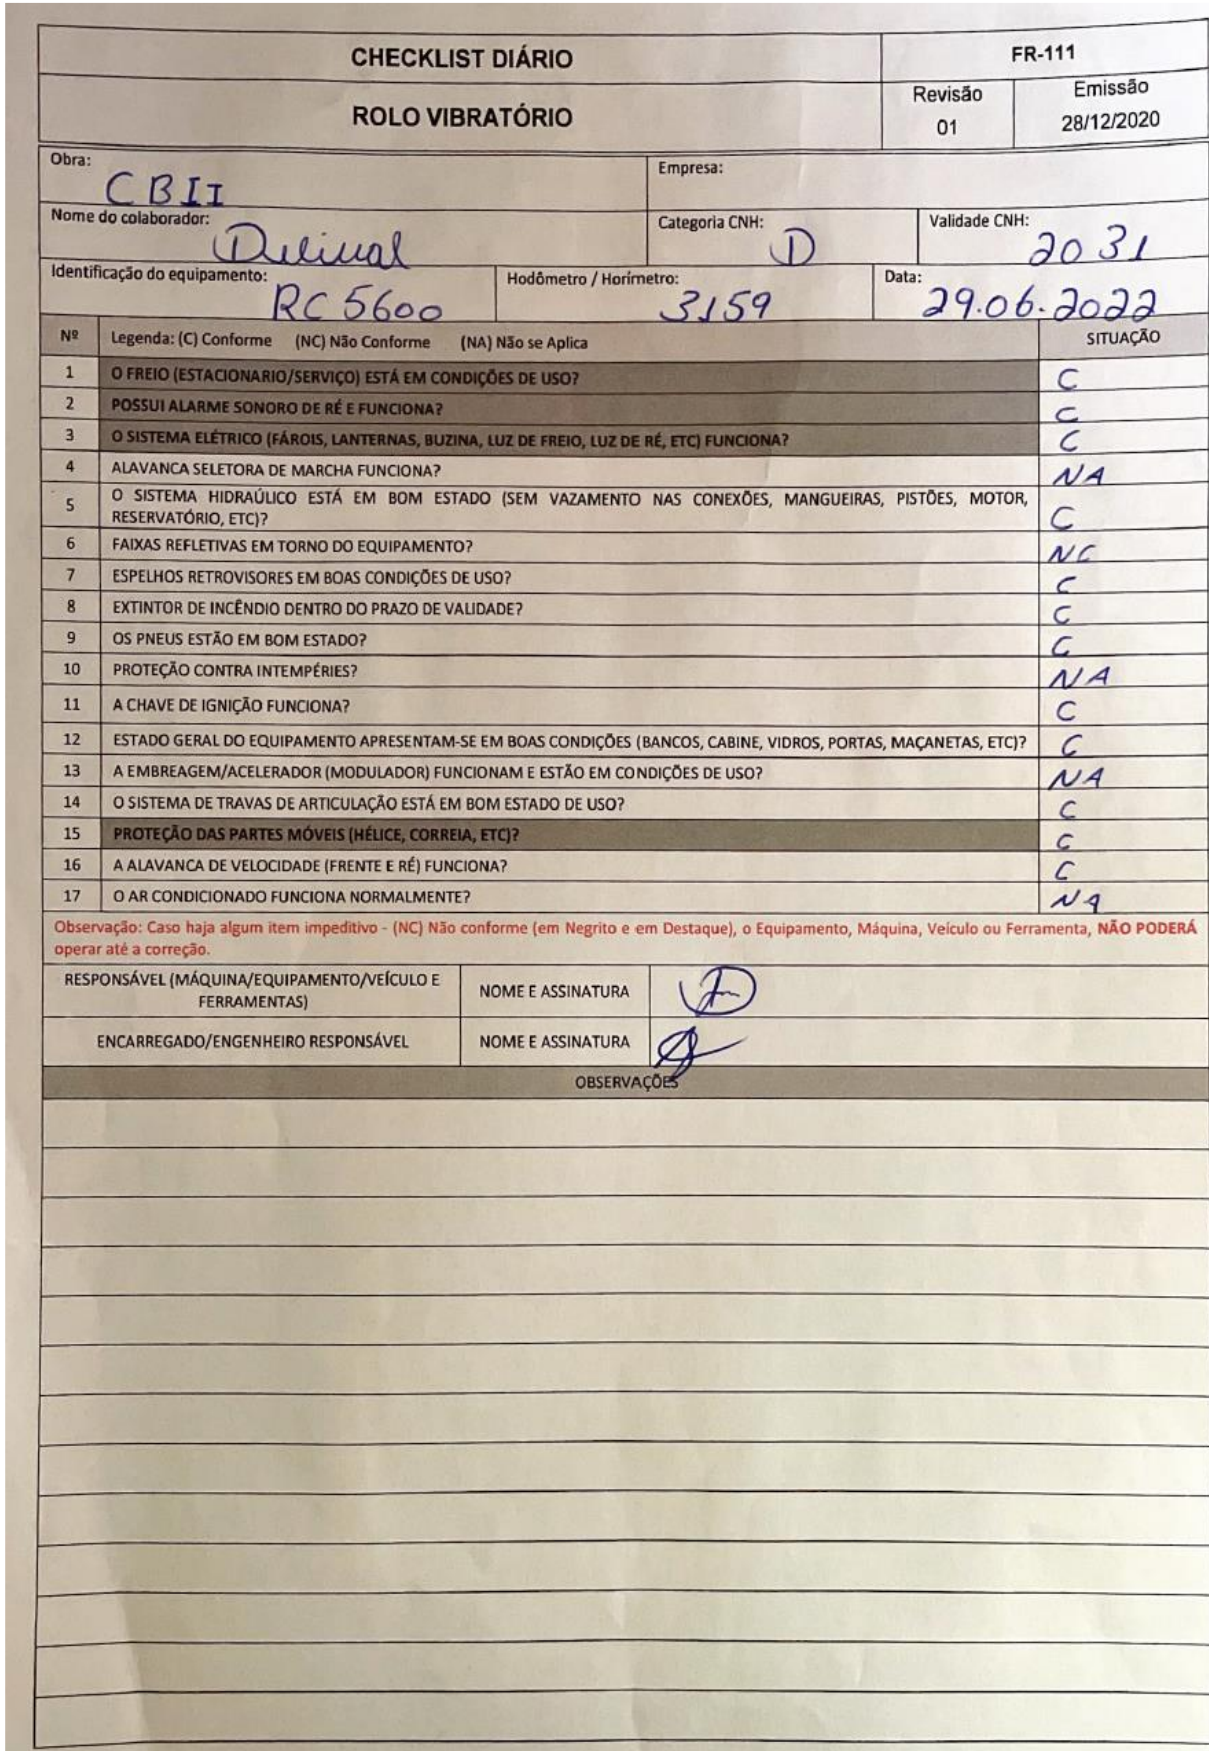 CHECKLIST DIÁRIO
FR-111
ROLO VIBRATÓRIO
Revisão
01
Emissão
28/12/2020
Obra:
CBII
Empresa:
Nome do colaborador:
Categoria CNH:
D
Validade CNH:
2031
Identificação do equipamento:
RC 5600
Hodômetro / Horímetro:
3159
Data:
29.06.2022
Nº Legenda: (C) Conforme (NC) Não Conforme (NA) Não se Aplica SITUAÇÃO
1 O FREIO (ESTACIONARIO/SERVIÇO) ESTÁ EM CONDIÇÕES DE USO? C
2 POSSUI ALARME SONORO DE RÉ E FUNCIONA? C
3 O SISTEMA ELÉTRICO (FÁROIS, LANTERNAS, BUZINA, LUZ DE FREIO, LUZ DE RÉ, ETC) FUNCIONA? C
4 ALAVANCA SELETORA DE MARCHA FUNCIONA? NA
5 O SISTEMA HIDRAÚLICO ESTÁ EM BOM ESTADO (SEM VAZAMENTO NAS CONEXÕES, MANGUEIRAS, PISTÕES, MOTOR,
RESERVATÓRIO, ETC)? C
6 FAIXAS REFLETIVAS EM TORNO DO EQUIPAMENTO? NC
7 ESPELHOS RETROVISORES EM BOAS CONDIÇÕES DE USO? C
8 EXTINTOR DE INCÊNDIO DENTRO DO PRAZO DE VALIDADE? C
9 OS PNEUS ESTÃO EM BOM ESTADO? C
10 PROTEÇÃO CONTRA INTEMPÉRIES? NA
11 A CHAVE DE IGNIÇÃO FUNCIONA? C
12 ESTADO GERAL DO EQUIPAMENTO APRESENTAM-SE EM BOAS CONDIÇÕES (BANCOS, CABINE, VIDROS, PORTAS, MAÇANETAS, ETC)? C
13 A EMBREAGEM/ACELERADOR (MODULADOR) FUNCIONAM E ESTÃO EM CONDIÇÕES DE USO? NA
14 O SISTEMA DE TRAVAS DE ARTICULAÇÃO ESTÁ EM BOM ESTADO DE USO? C
15 PROTEÇÃO DAS PARTES MÓVEIS (HÉLICE, CORREIA, ETC)? C
16 A ALAVANCA DE VELOCIDADE (FRENTE E RÉ) FUNCIONA? C
17 O AR CONDICIONADO FUNCIONA NORMALMENTE? NA
Observação: Caso haja algum item impeditivo - (NC) Não conforme (em Negrito e em Destaque), o Equipamento, Máquina, Veículo ou Ferramenta, NÃO PODERÁ
operar até a correção.
RESPONSÁVEL (MÁQUINA/EQUIPAMENTO/VEÍCULO E
FERRAMENTAS)
NOME E ASSINATURA
ENCARREGADO/ENGENHEIRO RESPONSÁVEL
NOME E ASSINATURA
OBSERVAÇÕES